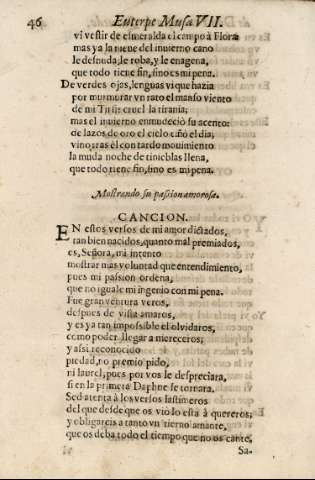 46 Euterpe Musa VII.
vi vestir de esmeralda el campo à Flora
mas ya la nieve del invierno cano
le desnuda, le roba, y le enagena,
que todo tiene fin, sino es mi pena.
De verdes ojas, lenguas vi que hazia
por murmurar vn rato el manso viento
de mi Tirsis cruel la tirania;
mas el invierno enmudeciò su acento:
de lazos de oro el cielo ciñò el dia,
vino tras èl con tardo mouimiento
la muda noche de tinieblas llena,
que todo tiene fin, sino es mi pena.
Mostrando su passion amorosa.
CANCION.
EN estos versos de mi amor dictados,
tan bien nacidos, quanto mal premiados,
es, Señora, mi intento
mostrar mas voluntad que entendimiento,
pues mi passion ordena,
que no iguale mi ingenio con mi pena.
Fue gran ventura veros,
despues de vista amaros,
y es ya tan impossible el olvidaros,
como poder llegar a mereceros;
y assi reconocido
piedad, no premio pido,
ni laurel, pues por vos le despreciara,
si en la primera Daphne se tornara.
Sed atenta à los versos lastimeros
del que desde que os vio lo està à quereros;
y obligareis a tanto vn tierno amante,
que os deba todo el tiempo que no os cante.
Sa-